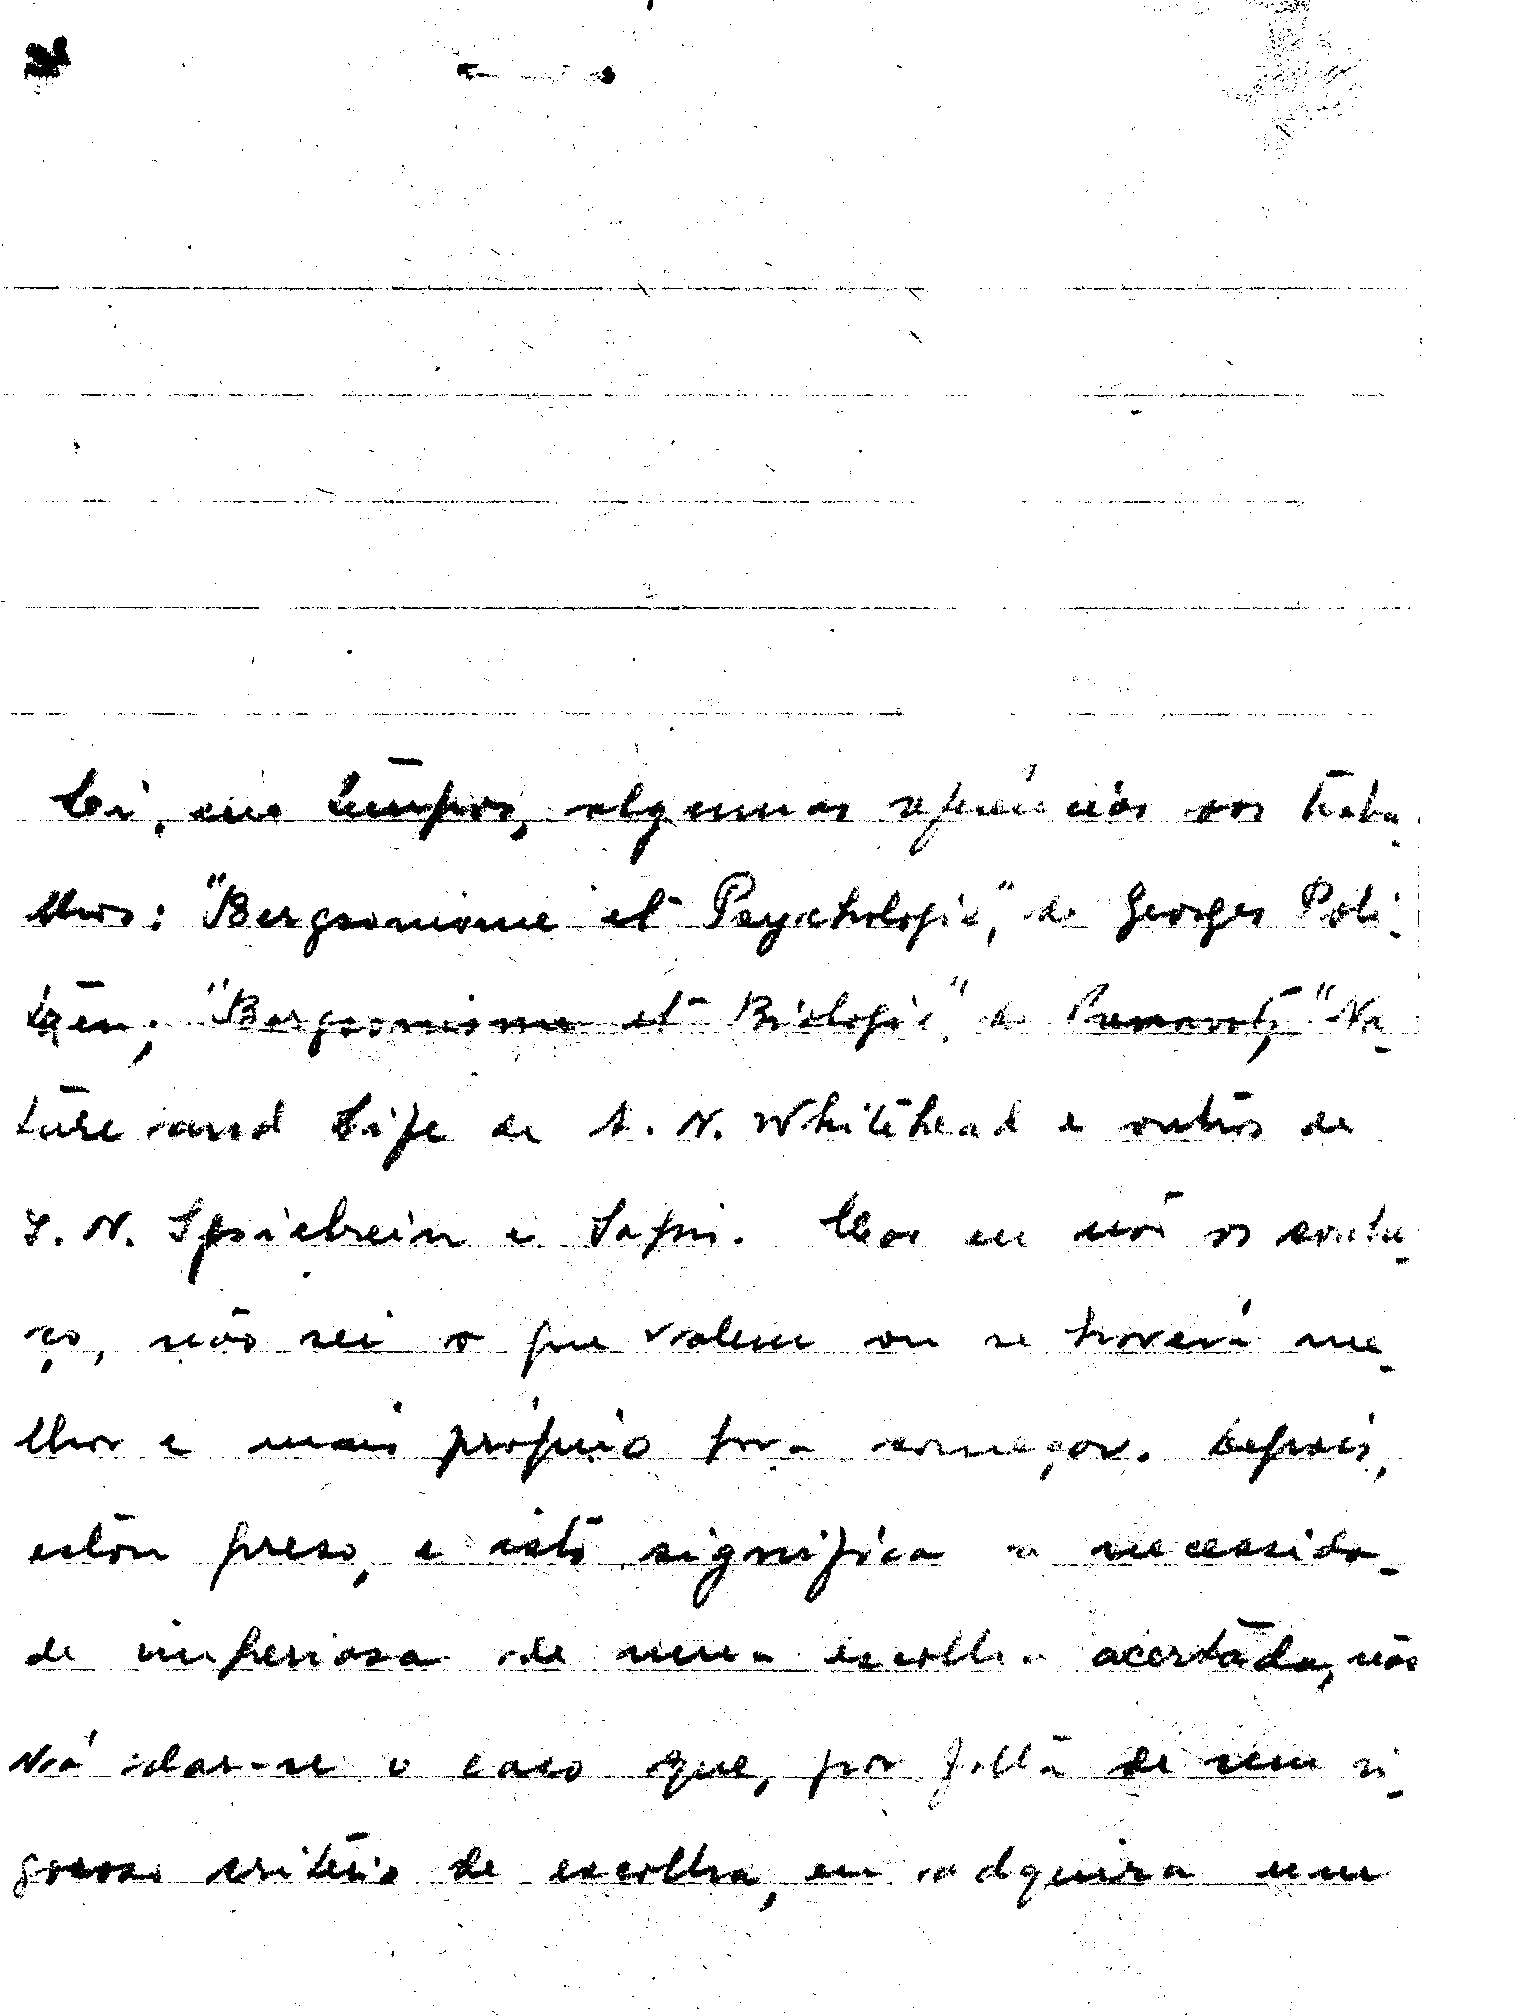 Li, em tempos, algumas referências aos traba-
lhos: "Bergsonisme et Psychologie", de Georges Poli-
tzen; "Bergsonisme et Biologie", de "Na-
ture and Life de A. N. Whitehead e outros de
I. N. Spielrein e Sapir. Mas eu não os conhe-
ço, não sei o que valem ou se haverá me-
lhor e mais próprio para começar. Depois,
estou preso, e isto significa a necessida-
de imperiosa de uma escolha acertada, não
vá dar-se o caso que, por falta de um ri-
goroso critério de escolha, eu adquira um